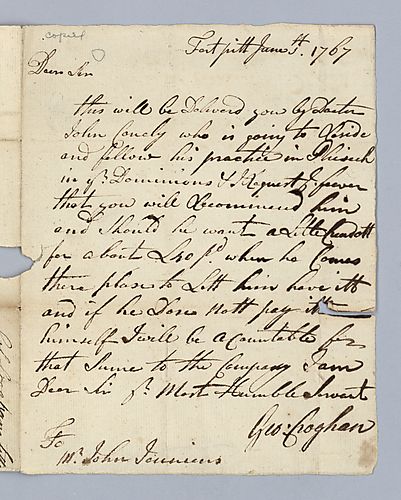 copied
Fort pitt June 1st. 1767
Dear Sir
this will be Deliverd you by Docter
John Conely who is going to Reside
and follow his practice in Phiseck
in yr. Dominions I Request ye. fever
that you will Recommend him
and Should he want a Little Creadett
for about £50 when he Comes
there plase to Lett him have itt
and if he Dose Nott pay itt
himself I will be acountable for
that Sume to the Company I am
Dear Sir yr. Most Humble Servant
Geo: Croghan
To
Mr. John